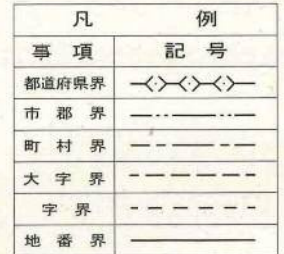 凡 例
事 項 記 号
都道府県界
市 郡 界
町 村 界
大 字 界
字 界
地 番 界